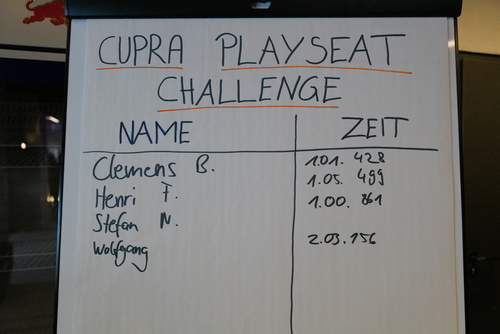 CUPRA PLAYSEAT
CHALLENGE
NAME ZEIT
Clemens B. 1.01. 428
Henri F. 1.05. 499
Stefan N. 1.00. 861
Wolfgang 2.03.156